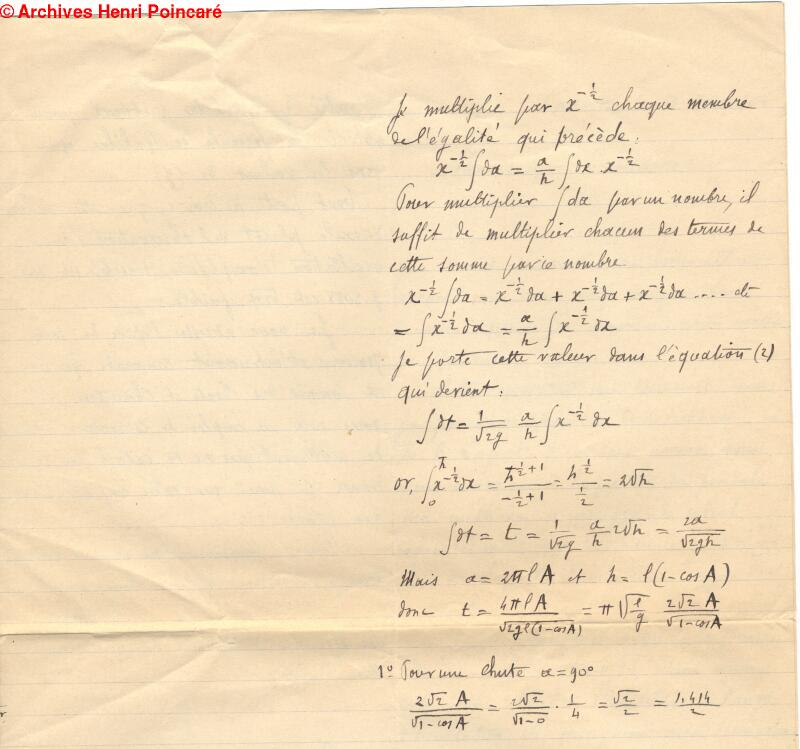 © Archives Henri Poincaré
Je multiplie par x^{-1/2} chaque membre
de l'égalité qui précède :
x^{-1/2} ∫dα = a/h ∫dx . x^{-1/2}
Pour multiplier ∫dα par un nombre, il
suffit de multiplier chacun des termes de
cette somme par ce nombre
x^{-1/2} ∫dα = x^{-1/2} dα + x^{-1/2} dα + x^{-1/2} dα .... etc
= ∫x^{-1/2} dα = a/h ∫x^{-1/2} dx
Je porte cette valeur dans l'équation (2)
qui devient :
∫dt = 1/√2g a/h ∫x^{-1/2} dx
or, ∫_0^h x^{-1/2} dx = h^{-1/2+1}/(-1/2+1) = h^{1/2}/(1/2) = 2√h
∫dt = t = 1/√2g a/h 2√h = 2a/√2gh
Mais a = 2πlA et h = l(1-cosA)
donc t = 4πlA/√2gl(1-cosA) = π√(l/g) 2√2 A/√1-cosA
1° Pour une chute α = 90°
2√2 A/√1-cosA = 2√2/√1-0 . 1/4 = √2/2 = 1,414/2